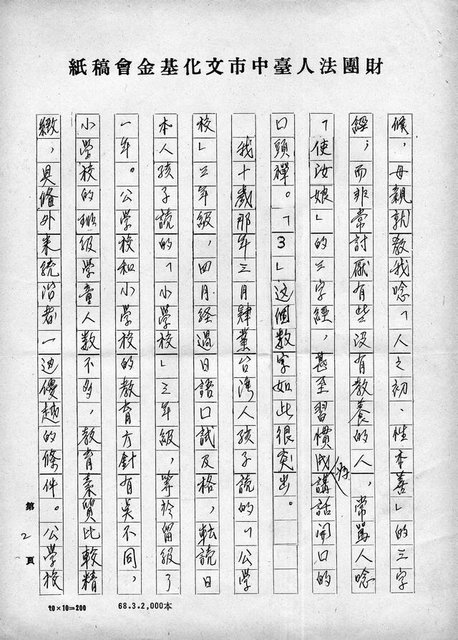 財團法人臺中市文化基金會稿紙
候，母親就教我唸「人之初、性本善」的三字
經；而非常討厭有些沒有教養的人，常罵人唸
「使汝娘」的三字經，甚至習慣成講話開口的
口頭禪。「3」这個數字如此很突出。
我十歲那年三月肄業台湾人孩子読的「公学
校」三年級，四月経過日語口試及格，転読日
本人孩子読的「小学校」三年級，等於留級了
一年。公学校和小学校的教育方針有異不同，
小学校的班級学童人数不多，教育素質比較精
緻，具備外来統治者一边優越的條件。公学校
第2頁
20×10=200
68.3.2,000本